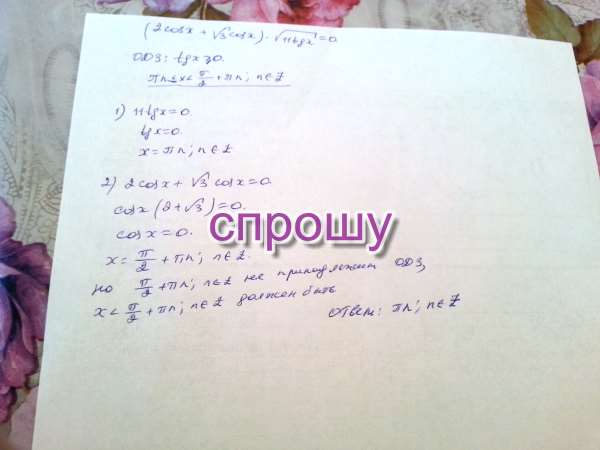 (2cosx + √3 cosx) · √11tgx = 0
ОДЗ: tgx ≥ 0.
πn ≤ x < π/2 + πn; n ∈ Z
1) 11tgx = 0.
tgx = 0.
x = πn; n ∈ Z
2) 2cosx + √3 cosx = 0
cosx (2 + √3) = 0.
cosx = 0.
x = π/2 + πn; n ∈ Z.
но π/2 + πn; n ∈ Z не принадлежит ОДЗ,
x < π/2 + πn; n ∈ Z должен быть
Ответ: πn; n ∈ Z
спрошу